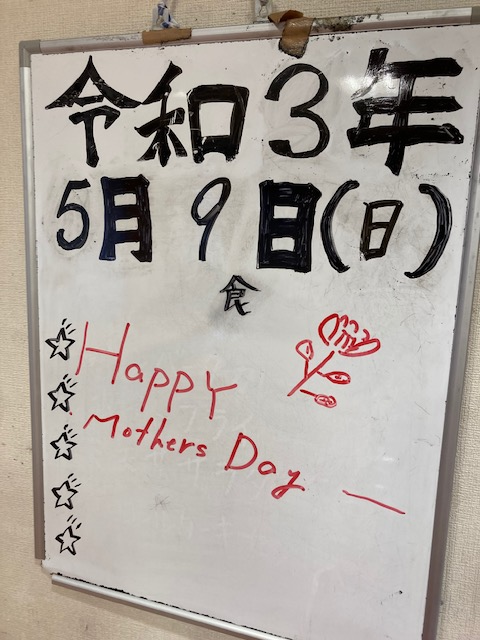 令和3年
5月9日(日)
食
Happy
Mothers Day